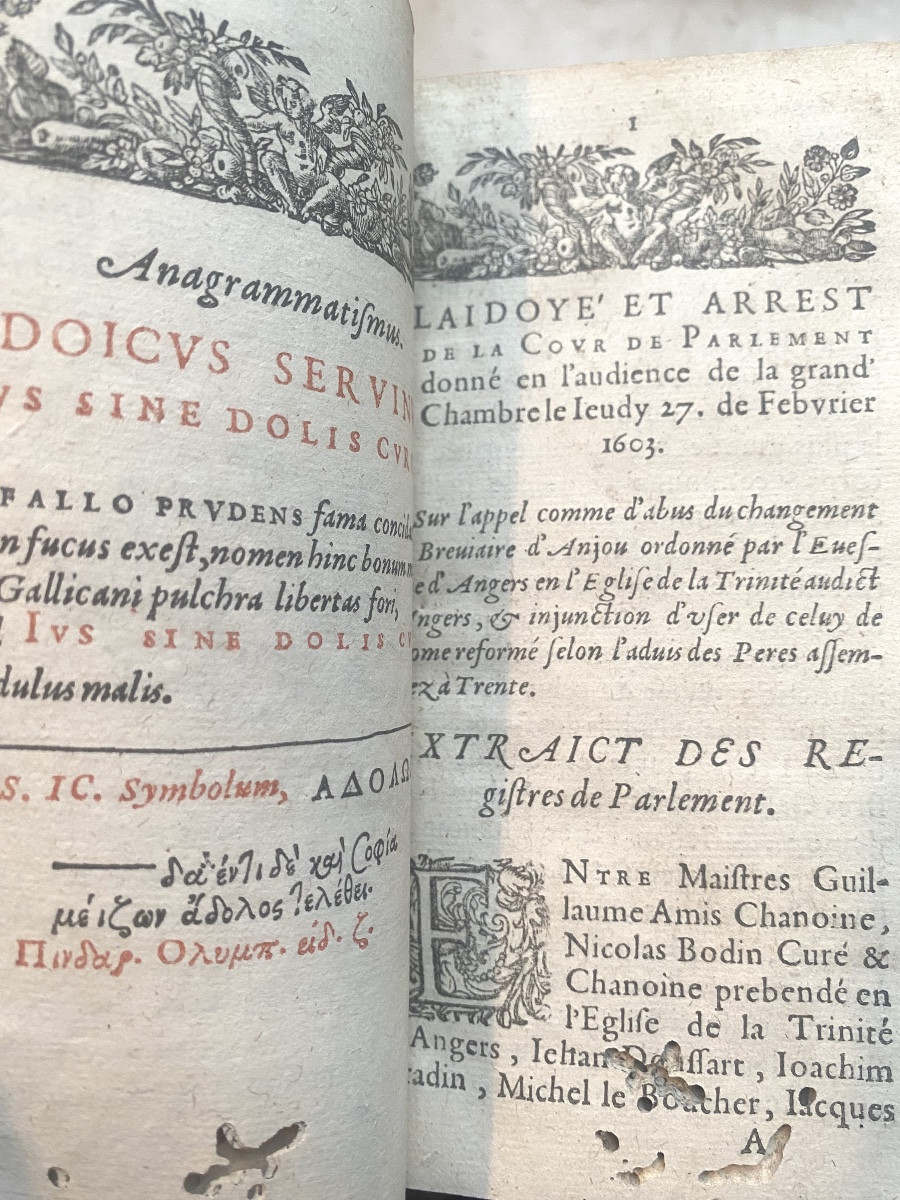 Anagrammatiſmus.
DOICVS SERVIN
VS SINE DOLIS CVR
FALLO PRVDENS fama concid
n fucus exeſt, nomen hinc bonum
Gallicani pulchra libertas fori,
IVS SINE DOLIS CV
dulus malis.
S. IC. Symbolum, ΑΔΟΛΩ
δαέντι δὲ καὶ Σοφία
μείζων ἄδολος τελέθει.
Πινδαρ. Ολυμπ. εἰδ. ζ.
1
LAIDOYE' ET ARREST
DE LA COVR DE PARLEMENT
donné en l'audience de la grand'
Chambre le Ieudy 27. de Febvrier
1603.
Sur l'appel comme d'abus du changement
Breuiaire d'Anjou ordonné par l'Eueſ-
e d'Angers en l'Egliſe de la Trinité audict
ngers, & injunction d'vſer de celuy de
ome reformé ſelon l'aduis des Peres aſſem-
ez à Trente.
XTRAICT DES RE-
giſtres de Parlement.
ENTRE Maiſtres Guil-
laume Amis Chanoine,
Nicolas Bodin Curé &
Chanoine prebendé en
l'Egliſe de la Trinité
Angers, Iehan ſſart, Ioachim
radin, Michel le Boucher, Iacques
A